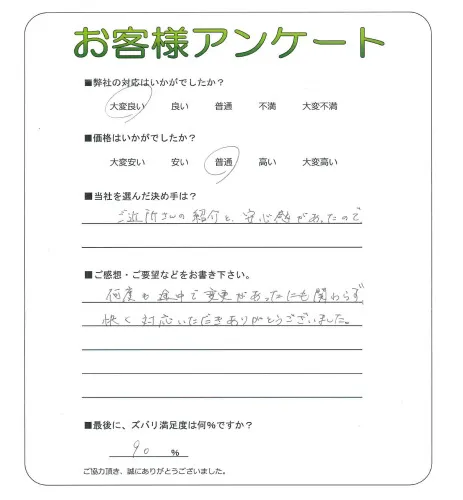 お客様アンケート
■弊社の対応はいかがでしたか？
大変良い 良い 普通 不満 大変不満
■価格はいかがでしたか？
大変安い 安い 普通 高い 大変高い
■当社を選んだ決め手は？
ご近所さんの紹介と、安心感があったので
■ご感想・ご要望などをお書き下さい。
何度も途中で変更があったにも関わらず、
快く対応いただきありがとうございました。
■最後に、ズバリ満足度は何%ですか？
90 %
ご協力頂き、誠にありがとうございました。